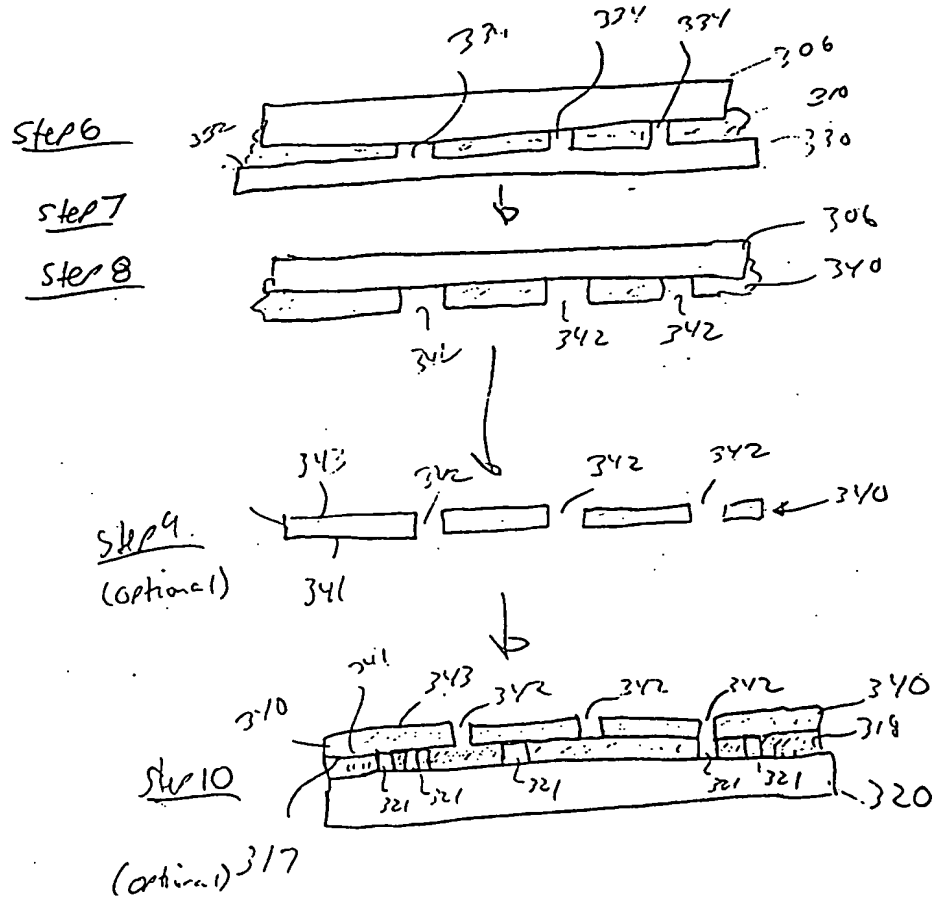 334 334 334 306
Step 6 332 310 330
Step 7
Step 8 306 340
342 342 342
343 342 342 342 340
Step 9
(optional) 341
341 343 342 342 342 340
310 318
Step 10 321 321 321 321 321 320
(optional) 317